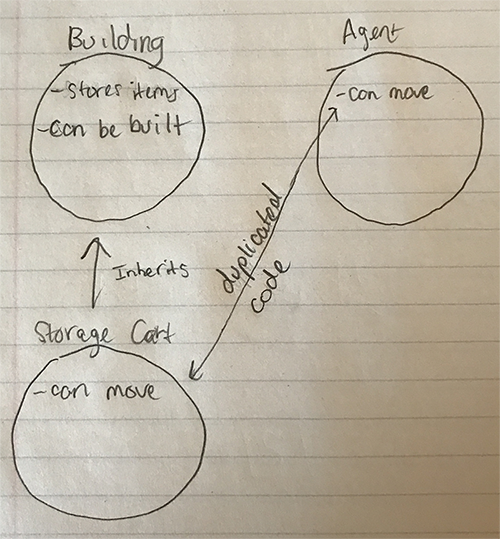 Building
-Stores items
-Can be built
Agent
-can move
duplicated
code
Inherits
Storage Cart
-can move